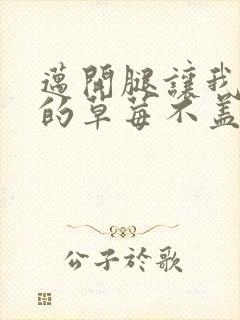 邁開腿讓我
的草莓不盖
公子於歌